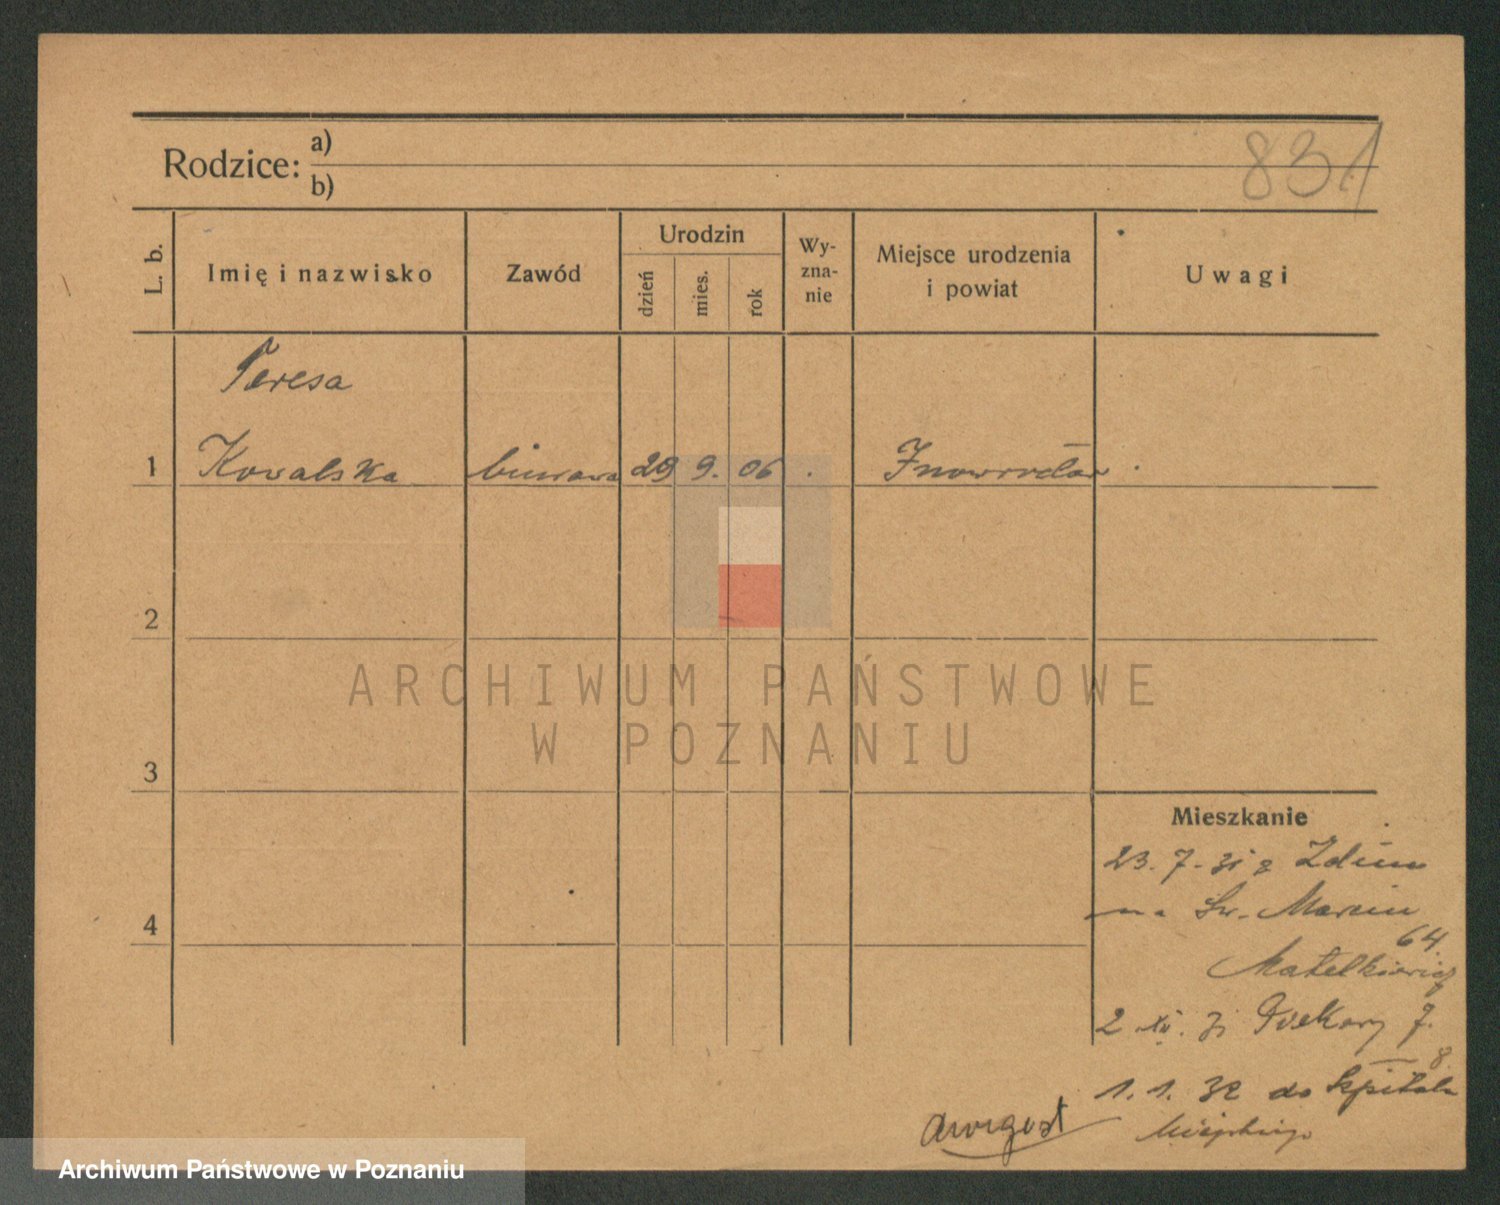 831
Rodzice:
a)
b)
L. b.
Imię i nazwisko
Zawód
Urodzin
dzień
mies.
rok
Wy-
zna-
nie
Miejsce urodzenia
i powiat
Uwagi
Teresa
1 Kowalska biurowa 29 9. 06 Inowrocław
2
ARCHIWUM PAŃSTWOWE
W POZNANIU
3
Mieszkanie
23. 7. 31 z
na Św. Marcin
64
4
2 XI. 31 Piekary 7.
8
1. 1. 32 do Szpitala
Miejskiego
Archiwum Państwowe w Poznaniu